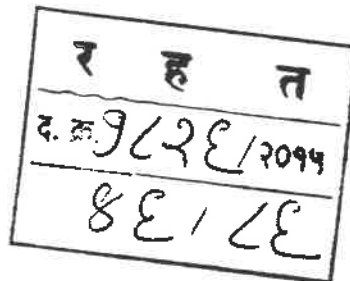 र ह त
द. क्र. १८२६/२०१५
४६/८६